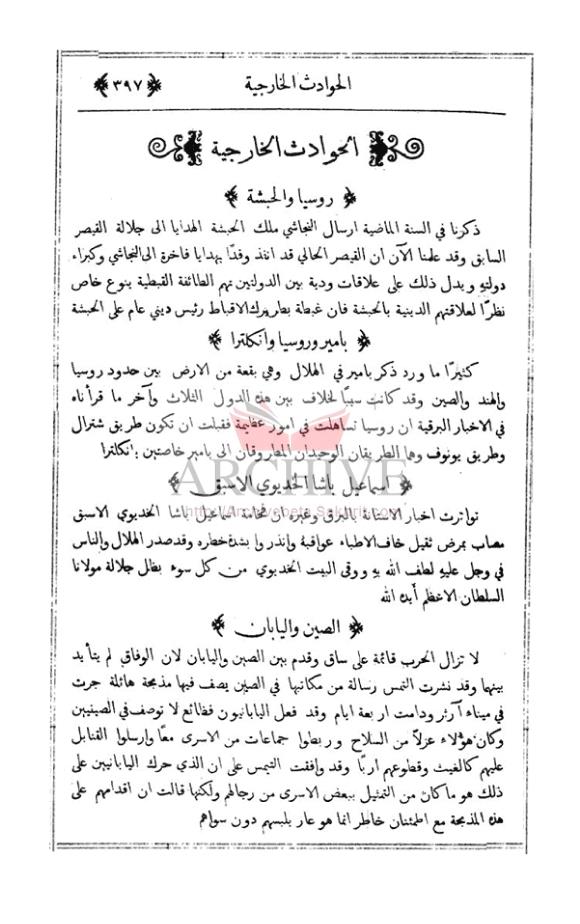 الحوادث الخارجية ﴿٣٩٧﴾
الحوادث الخارجية
﴿ روسيا والحبشة ﴾
ذكرنا في السنة الماضية ارسال النجاشي ملك الحبشة الهدايا الى جلالة القيصر
السابق وقد علمنا الآن ان القيصر الحالي قد انفذ وفدًا بهدايا فاخرة الى النجاشي وكبراء
دولتهِ ويدل ذلك على علاقات ودية بين الدولتين تهم الطائفة القبطية بنوع خاص
نظرًا لعلاقتهم الدينية بالحبشة فان غبطة بطريرك الاقباط رئيس ديني عام على الحبشة
﴿ بامير وروسيا وانكلترا ﴾
كثيرًا ما ورد ذكر بامير في الهلال وهي بقعة من الارض بين حدود روسيا
والهند والصين وقد كانت سببًا لخلاف بين هذه الدول الثلاث وآخر ما قرأناه
في الاخبار البرقية ان روسيا تساهلت في امور عظيمة فقبلت ان تكون طريق شترال
وطريق يونوف وهما الطريقان الوحيدان المطروقان الى بامير خاصتين بانكلترا
﴿ اسماعيل باشا الخديوي الاسبق ﴾
تواترت اخبار الاستانة بالبرق وغيره ان فخامة اسماعيل باشا الخديوي الاسبق
مصاب بمرض ثقيل خاف الاطباء عواقبهُ وانذروا بشدة خطره وقد صدر الهلال والناس
في وجل عليهِ لطف الله بهِ ووقى البيت الخديوي من كل سوء بظل جلالة مولانا
السلطان الاعظم أيده الله
﴿ الصين واليابان ﴾
لا تزال الحرب قائمة على ساق وقدم بين الصين واليابان لان الوفاق لم يتأيد
بينهما وقد نشرت التمس رسالة من مكاتبها في الصين يصف فيها مذبحة هائلة جرت
في ميناء آرثر ودامت اربعة ايام وقد فعل اليابانيون فظائع لا توصف في الصينيين
وكان هؤلاء عزلًا من السلاح وربطوا جماعات من الاسرى معًا وارسلوا القنابل
عليهم كالغيث وقطعوهم اربًا وقد وافقت التيمس على ان الذي حرك اليابانيين على
ذلك هو ما كان من التمثيل ببعض الاسرى من رجالهم ولكنها قالت ان اقدامهم على
هذه المذبحة مع اطمئنان خاطر انما هو عار يلبسهم دون سواهم
ARCHIVE
http://Archivebeta.Sakhrit.com